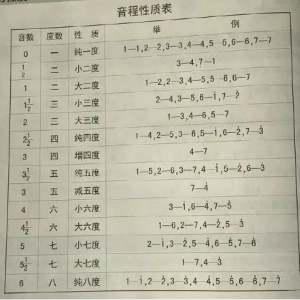 音程性质表
音数 度数 性质 举例
0 一 纯一度 1—1,2—2,3—3,4—4,5—5,6—6,7—7
1/2 二 小二度 3—4,7—1̇
1 二 大二度 1—2,2—3,4—5,5—6,6—7
1 1/2 三 小三度 2—4,3—5,6—1̇,7—2̇
2 三 大三度 1—3,4—6,5—7
2 1/2 四 纯四度 1—4,2—5,3—6,5—1̇,6—2̇,7—3̇
3 四 增四度 4—7
3 1/2 五 纯五度 1—5,2—6,3—7,4—1̇,5—2̇,6—3̇
3 五 减五度 7—4̇
4 六 小六度 3—1̇,6—4̇,7—5̇
4 1/2 六 大六度 1—6,2—7,4—2̇,5—3̇
5 七 小七度 2—1̇,3—2̇,5—4̇,6—5̇,7—6̇
5 1/2 七 大七度 1—7,4—3̇
6 八 纯八度 1—1̇,2—2̇,3—3̇,4—4̇,5—5̇,6—6̇,7—7̇